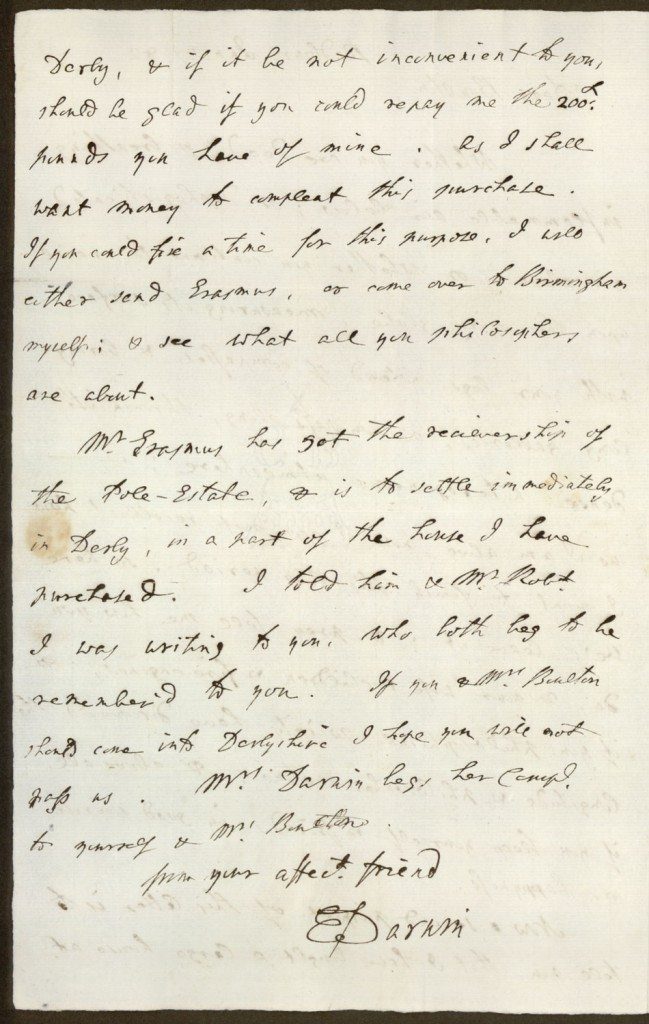 Derby, & if it be not inconvenient to you,
should be glad if you could repay me the 200
pounds you have of mine. as I shall
want money to compleat this purchase.
If you could fix a time for this purpose, I will
either send Erasmus, or come over to Birmingham
myself; & see what all you philosophers
are about.
Mr Erasmus has got the recievership of
the Pole-Estate, & is to settle immediately
in Derby, in a part of the house I have
purchased. I told him & Mr Robt
I was writing to you, who both beg to be
remember'd to you. If you & Mrs Boulton
should come into Derbyshire I hope you will not
pass us. Mrs Darwin begs her Compt.
to yourself & Mrs Boulton.
from your affect. friend
E Darwin